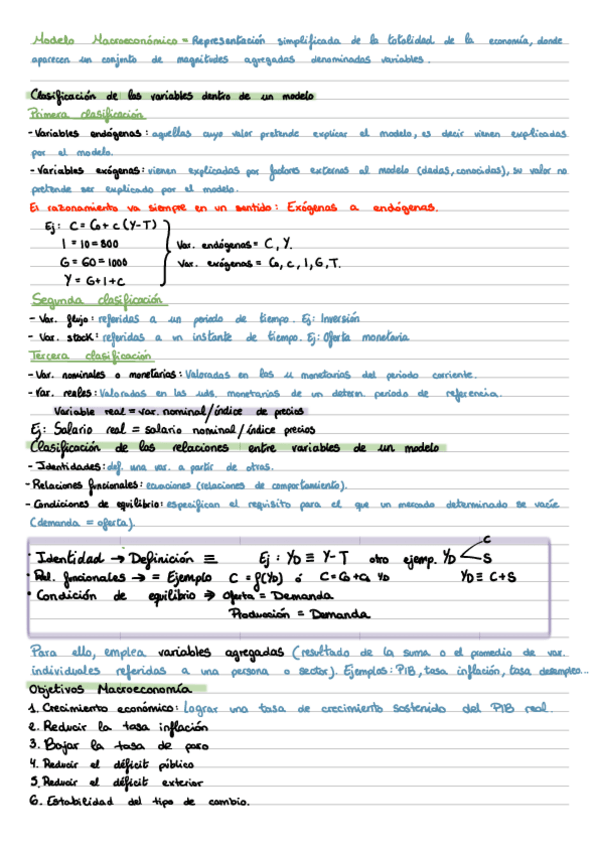 Modelo Macroeconómico = Representación simplificada de la totalidad de la economía, donde
aparecen un conjunto de magnitudes agregadas denominadas variables.
Clasificación de las variables dentro de un modelo
Primera clasificación
- Variables endógenas: aquellas cuyo valor pretende explicar el modelo, es decir vienen explicadas
por el modelo.
- Variables exógenas: vienen explicadas por factores externos al modelo (dadas, conocidas), su valor no
pretende ser explicado por el modelo.
El razonamiento va siempre en un sentido: Exógenas a endógenas.
Ej: C = C0 + c (Y-T)
I = I0 = 800
G = G0 = 1000
Y = G+I+C
Var. endógenas = C, Y.
Var. exógenas = C0, c, I, G, T.
Segunda clasificación
- Var. flujo: referidas a un periodo de tiempo. Ej: Inversión
- Var. stock: referidas a un instante de tiempo. Ej: Oferta monetaria
Tercera clasificación
- Var. nominales o monetarias: Valoradas en las u monetarias del periodo corriente.
- Var. reales: Valoradas en las uds. monetarias de un determ. periodo de referencia.
Variable real = var. nominal/índice de precios
Ej: Salario real = salario nominal/índice precios
Clasificación de las relaciones entre variables de un modelo
- Identidades: def. una var. a partir de otras.
- Relaciones funcionales: ecuaciones (relaciones de comportamiento).
- Condiciones de equilibrio: especifican el requisito para el que un mercado determinado se vacíe
(demanda = oferta).
· Identidad → Definición ≡ Ej: YD ≡ Y-T otro ejemp. YD C S
· Rel. funcionales → = Ejemplo C = f(YD) ó C = C0 + C1 YD YD ≡ C+S
· Condición de equilibrio → Oferta = Demanda
Producción = Demanda
Para ello, emplea variables agregadas (resultado de la suma o el promedio de var.
individuales referidas a una persona o sector). Ejemplos: PIB, tasa inflación, tasa desempleo...
Objetivos Macroeconomía
1. Crecimiento económico: Lograr una tasa de crecimiento sostenido del PIB real.
2. Reducir la tasa inflación
3. Bajar la tasa de paro
4. Reducir el déficit público
5. Reducir el déficit exterior
6. Estabilidad del tipo de cambio.